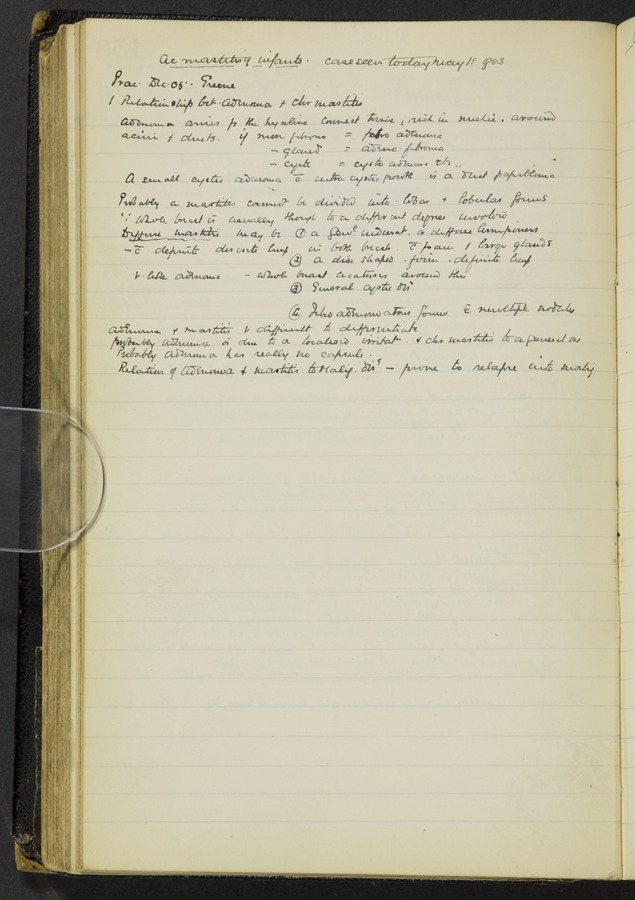 Ac mastitis of infants. case seen today May 11 903
Prac. Dec. 05. Greene
1 Relationship bet. adenoma + chr mastitis
adenoma arises fr the hyaline connect tissue, rich in nuclei, around
acini + ducts. if more fibrous = fibro adenoma
- gland = adeno-fibroma
- cystic = cysto adenoma. etc..
A small cystic adenoma c̄ intra cystic growth is a duct papilloma
Probably a mastitis cannot be divided into lobar + lobular forms
∵ whole breast is usually though to a different degree involved
Diffuse mastitis may be ① a genl indurat. c diffuse lumpiness
- c̄ definite discrete lump. in both breasts. c̄ pain + large glands
② a disc shaped firm definite lump
v. like adenoma - whole breast cicatrises around this
③ General cystic dis
④ Fibro adenomatous form c̄ multiple nodules
adenoma + mastitis v difficult to differentiate
probably adenoma is due to a localised irritat. + chr mastitis to a general one
Probably adenoma has really no capsule.
Relation of adenoma + mastitis to malig. dis - prone to relapse into malig